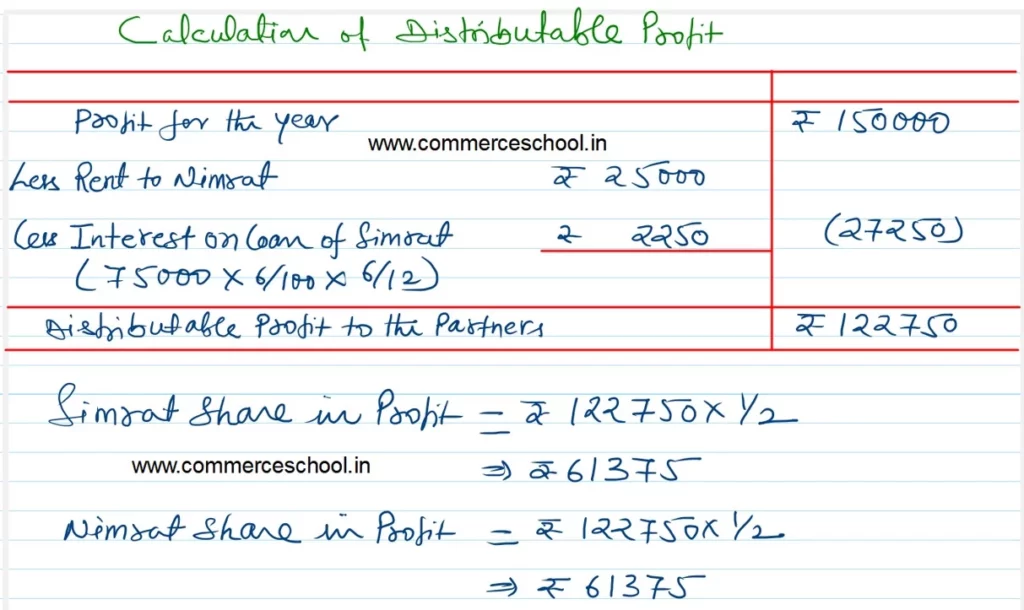 Calculation of Distributable Profit
Profit for the year ₹ 150000
www.commerceschool.in
Less Rent to Nimrat ₹ 25000
Less Interest on Loan of Simrat ₹ 2250 (27250)
(75000 × 6/100 × 6/12)
Distributable Profit to the Partners ₹ 122750
Simrat Share in Profit = ₹ 122750 × 1/2
www.commerceschool.in
⇒ ₹ 61375
Nimrat Share in Profit = ₹ 122750 × 1/2
⇒ ₹ 61375